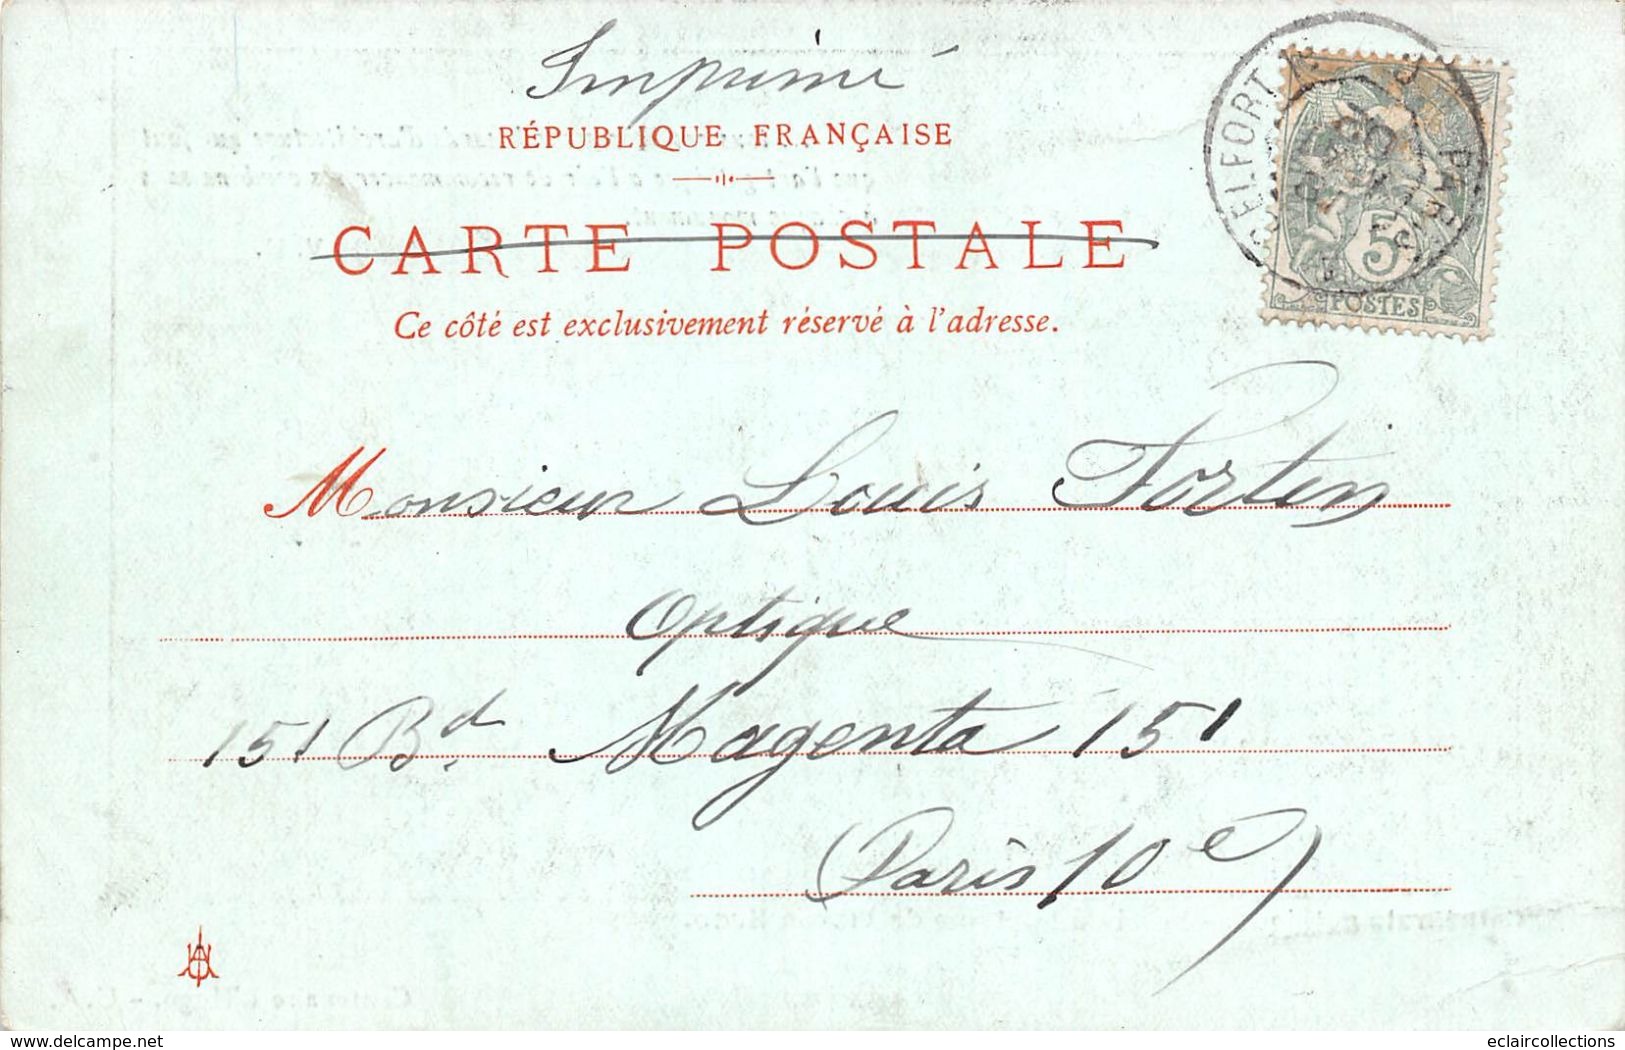 Imprimé
RÉPUBLIQUE FRANÇAISE
CARTE POSTALE
Ce côté est exclusivement réservé à l'adresse.
Monsieur Louis Fortin
Optique
151 Bd. Magenta 151
(Paris 10e)
5
POSTES
ELFORT
PARIS
delcampe.net
eclaircollections